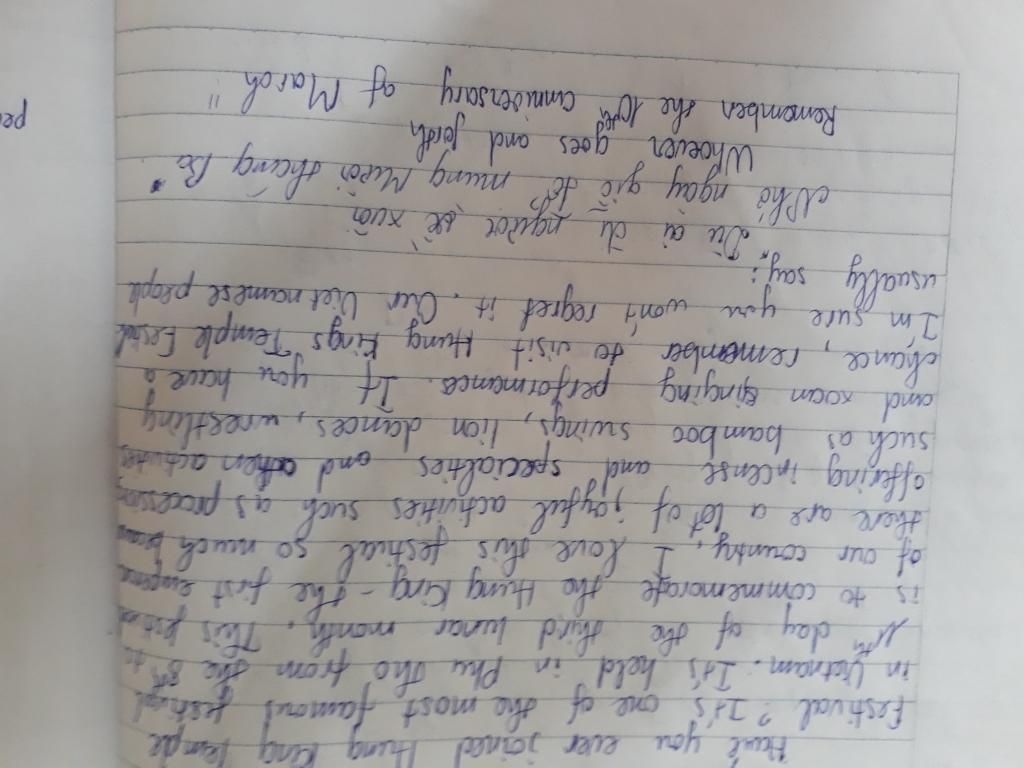 Have you ever joined Hung King Temple
festival? It's one of the most famous festival
in Vietnam. It's held in Phu Tho from the 8th to
11th day of the third lunar month. This festival
is to commemorate the Hung King - the first emperor
of our country, I love this festival so much because
there are a lot of joyful activities such as procession,
offering incense and specialties and other activities
such as bamboo swings, lion dances, wrestling
and xoan singing performances. If you have a
chance, remember to visit Hung Kings Temple Festival
I'm sure you won't regret it. Our Vietnamese people
usually say:
"Dù ai đi ngược về xuôi
Nhớ ngày giỗ tổ mùng Mười tháng Ba"
Whoever goes and forth
Remember the 10th anniversary of March "
pe